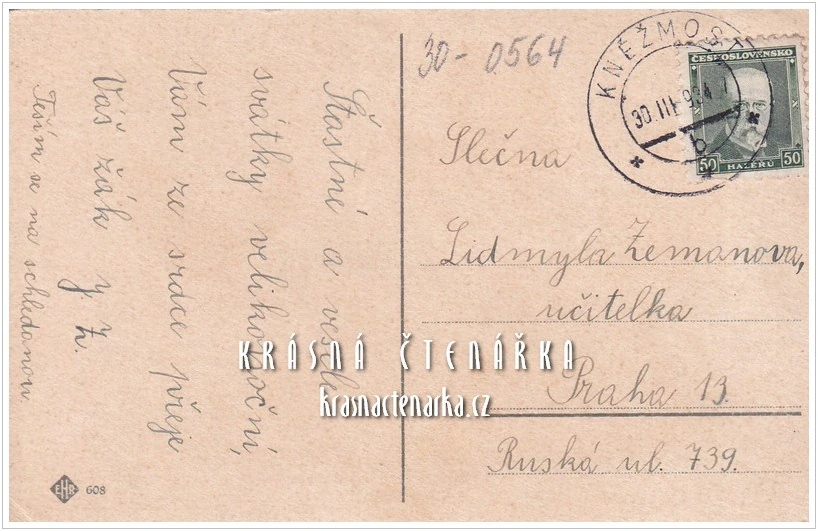 30-0564
KNĚŽMOST
30.III.934
b
ČESKOSLOVENSKO
50 HALÉŘŮ 50
Šťastné a veselé
svátky velikonoční,
Vám ze srdce přeje
Váš žák y. Z.
Těším se na schledanou
Slečna
Lidmyla Zemanova,
učitelka
Praha 13.
Ruská ul. 739.
KRÁSNÁ ČTENÁŘKA
krasnactenarka.cz
EHB 608